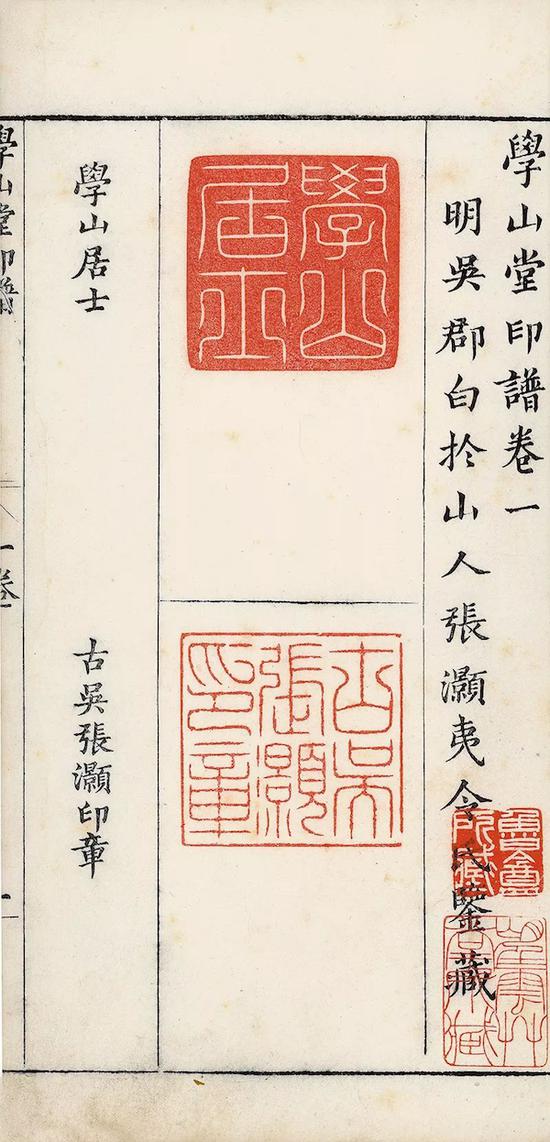 學山堂印譜卷一
明吳郡白於山人張灝夷令氏鑒藏
魯盦所藏
學山居士
古吳張灝印章
學山居士
古吳張灝印章
學山堂印譜
卷一
一